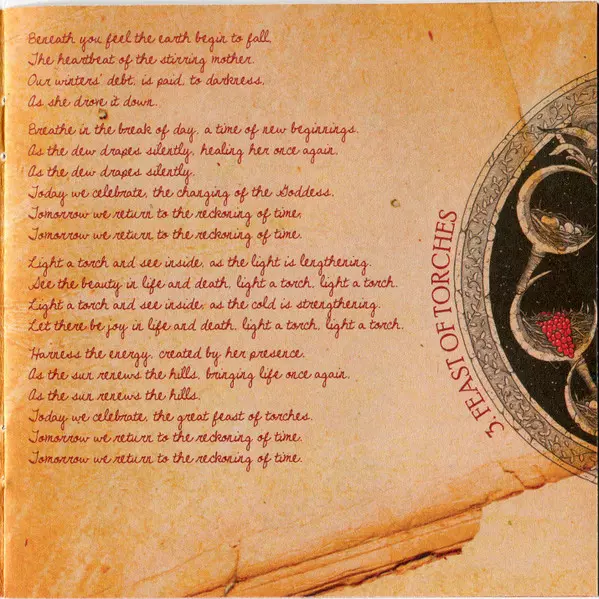 Beneath you feel the earth begin to fall,
The heartbeat of the stirring mother.
Our winters' debt, is paid, to darkness,
As she drove it down.
Breathe in the break of day, a time of new beginnings.
As the dew drapes silently, healing her once again.
As the dew drapes silently.
Today we celebrate, the changing of the Goddess.
Tomorrow we return to the reckoning of time,
Tomorrow we return to the reckoning of time.
Light a torch and see inside, as the light is lengthening.
See the beauty in life and death, light a torch, light a torch.
Light a torch and see inside, as the cold is strengthening.
Let there be joy in life and death, light a torch, light a torch.
Harness the energy, created by her presence.
As the sun renews the hills, bringing life once again.
As the sun renews the hills.
Today we celebrate, the great feast of torches.
Tomorrow we return to the reckoning of time.
Tomorrow we return to the reckoning of time.
3. FEAST OF TORCHES